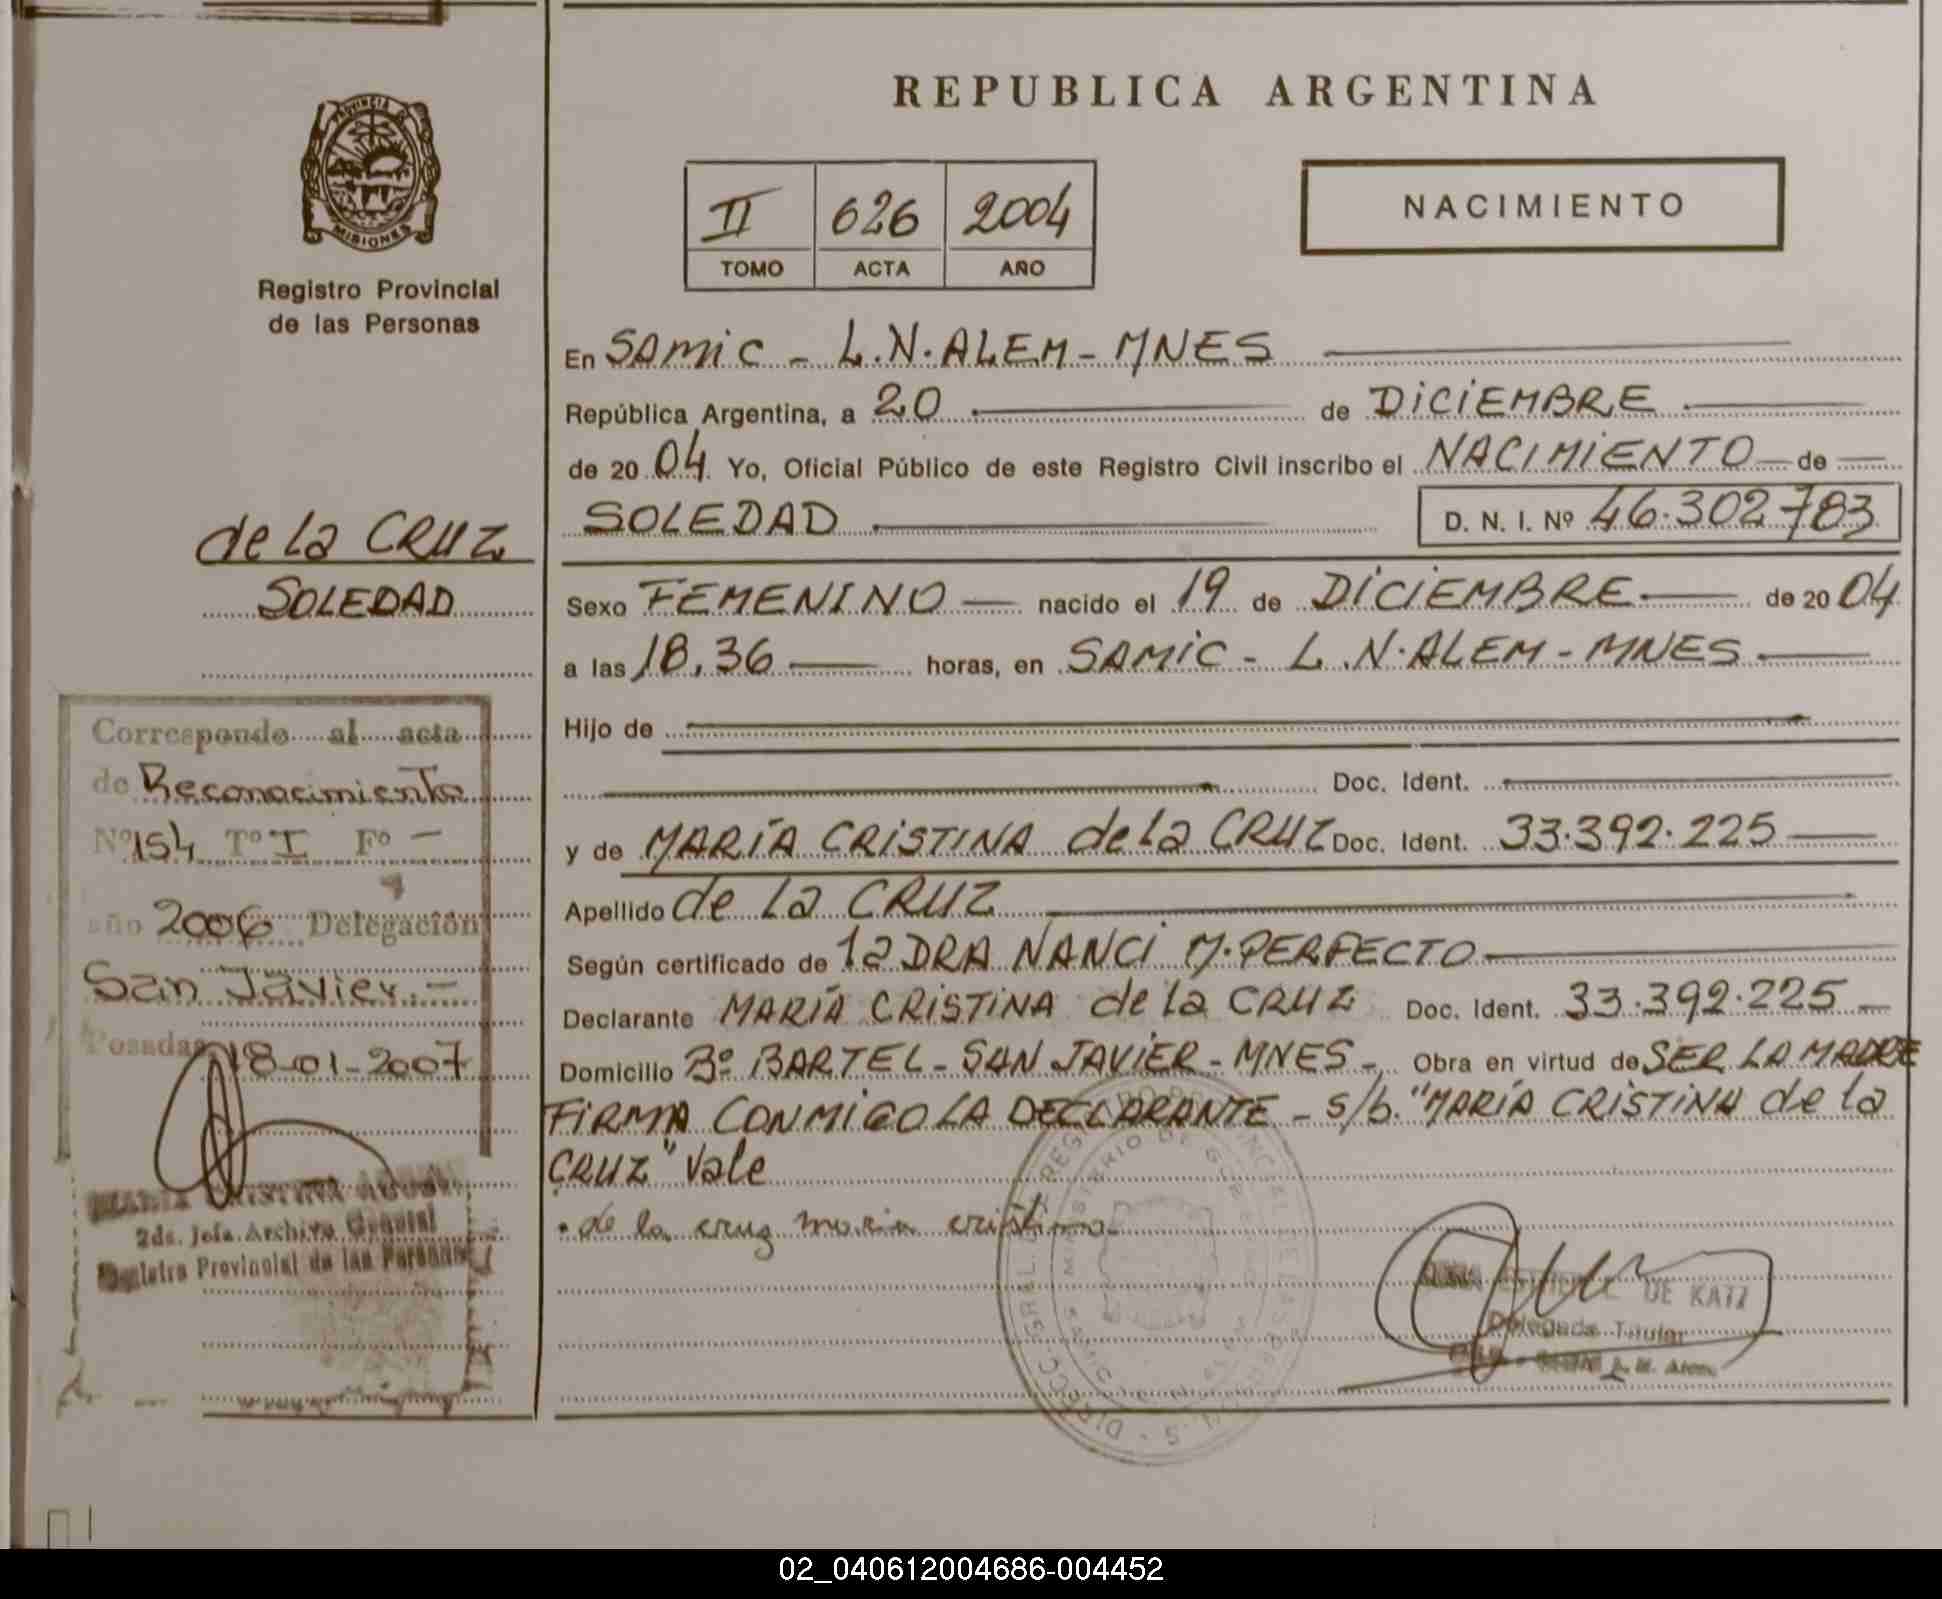 REPUBLICA ARGENTINA
PROVINCIA DE
MISIONES
Registro Provincial
de las Personas
II 626 2004
TOMO ACTA AÑO
NACIMIENTO
En SAMIC - L.N.ALEM - MNES
República Argentina, a 20 de DICIEMBRE
de 2004 Yo, Oficial Público de este Registro Civil inscribo el NACIMIENTO de
SOLEDAD D. N. I. Nº 46.302.783
Sexo FEMENINO nacido el 19 de DICIEMBRE de 2004
a las 18,36 horas, en SAMIC - L.N.ALEM - MNES
Hijo de
Doc. Ident.
y de MARÍA CRISTINA de la CRUZ Doc. Ident. 33.392.225
Apellido de la CRUZ
Según certificado de la DRA NANCI M. PERFECTO
Declarante MARÍA CRISTINA de la CRUZ Doc. Ident. 33.392.225
Domicilio Bº BARTEL - SAN JAVIER - MNES - Obra en virtud de SER LA MADRE
FIRMA CONMIGO LA DECLARANTE - s/b. "MARÍA CRISTINA de la
CRUZ" Vale
de la cruz maria cristina
DE KATZ
Delegada Titular
L. N. Alem
de la CRUZ
SOLEDAD
Corresponde al acta
de Reconocimiento
Nº 154 Tº I Fº -
año 2006 Delegación
San Javier.-
Posadas 18-01-2007
MARIA CRISTINA
2da. Jefa Archivo General
Registro Provincial de las Personas
02_040612004686-004452